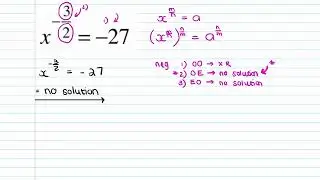 x^{-\frac{3}{2}} = -27
x^{-\frac{3}{2}} = -27
= no solution
x^{\frac{m}{n}} = a
neg 1) OO → x R
*2) OE → no solution
3) EO → no solution